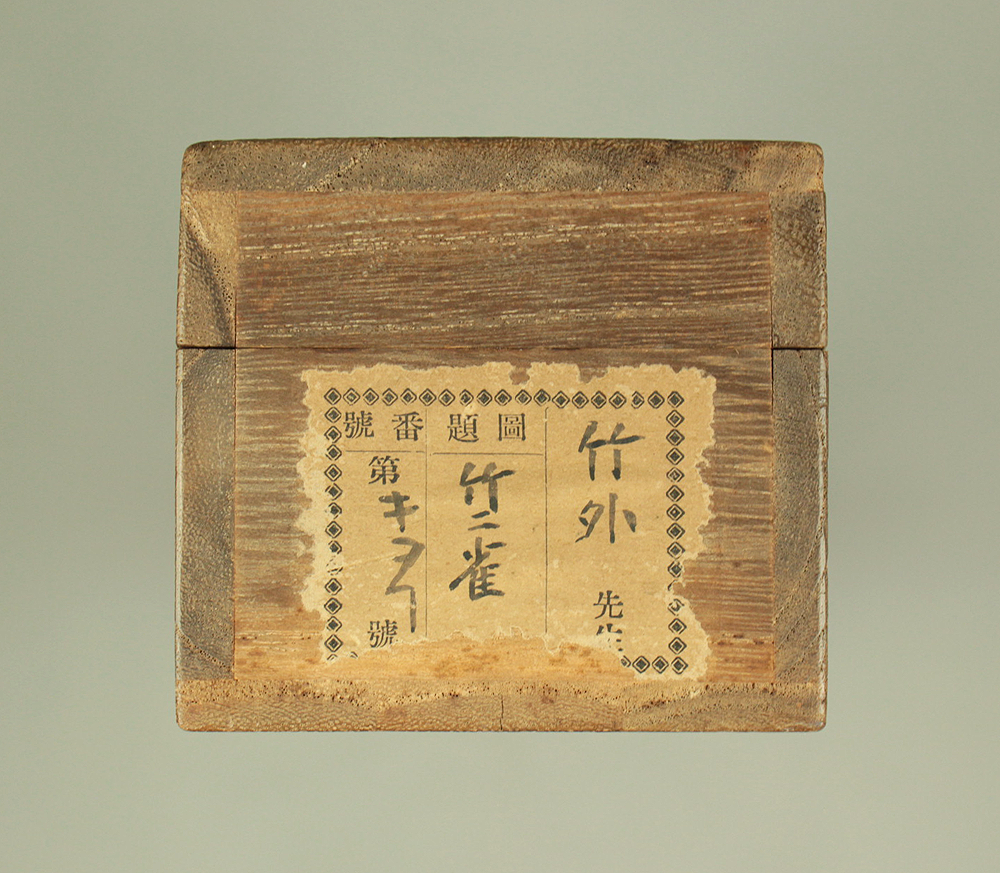 竹外 先生
圖題
竹ニ雀
番號
第キ 號